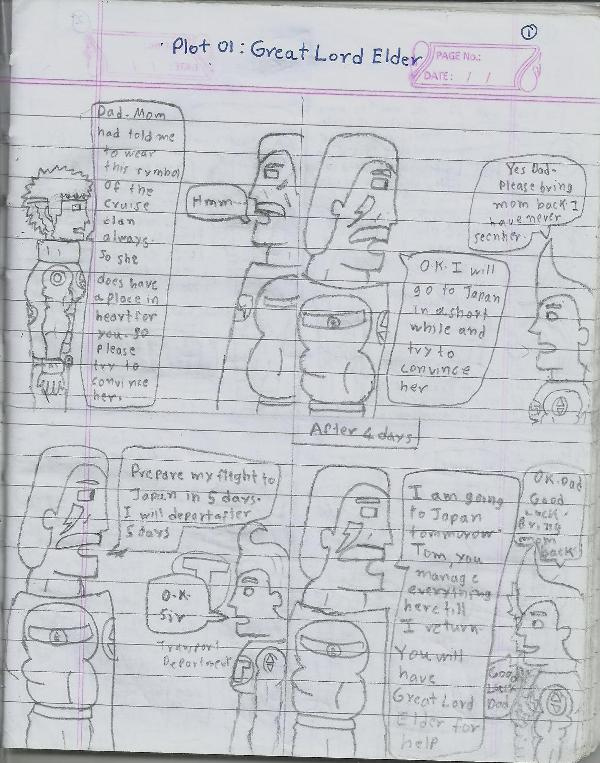 1
Plot 01: Great Lord Elder
PAGE No.:
DATE: / /
Dad. Mom
had told me
to wear
this symbol
of the
cruise
clan
always.
So she
does have
a place in
heart for
you. So
please
try to
convince
her.
Hmm..
O.K. I will
go to Japan
in a short
while and
try to
convince
her
Yes Dad.
Please bring
mom back. I
have never
seen her.
After 4 days
Prepare my flight to
Japan in 5 days.
I will depart after
5 days
O.K.
Sir
Transport
Department
I am going
to Japan
tommorow.
Tom, you
manage
everything
here till
I return.
You will
have
Great Lord
Elder for
help
O.K. Dad
Good
Luck.
Bring
mom
back!
Good
Luck
Dad